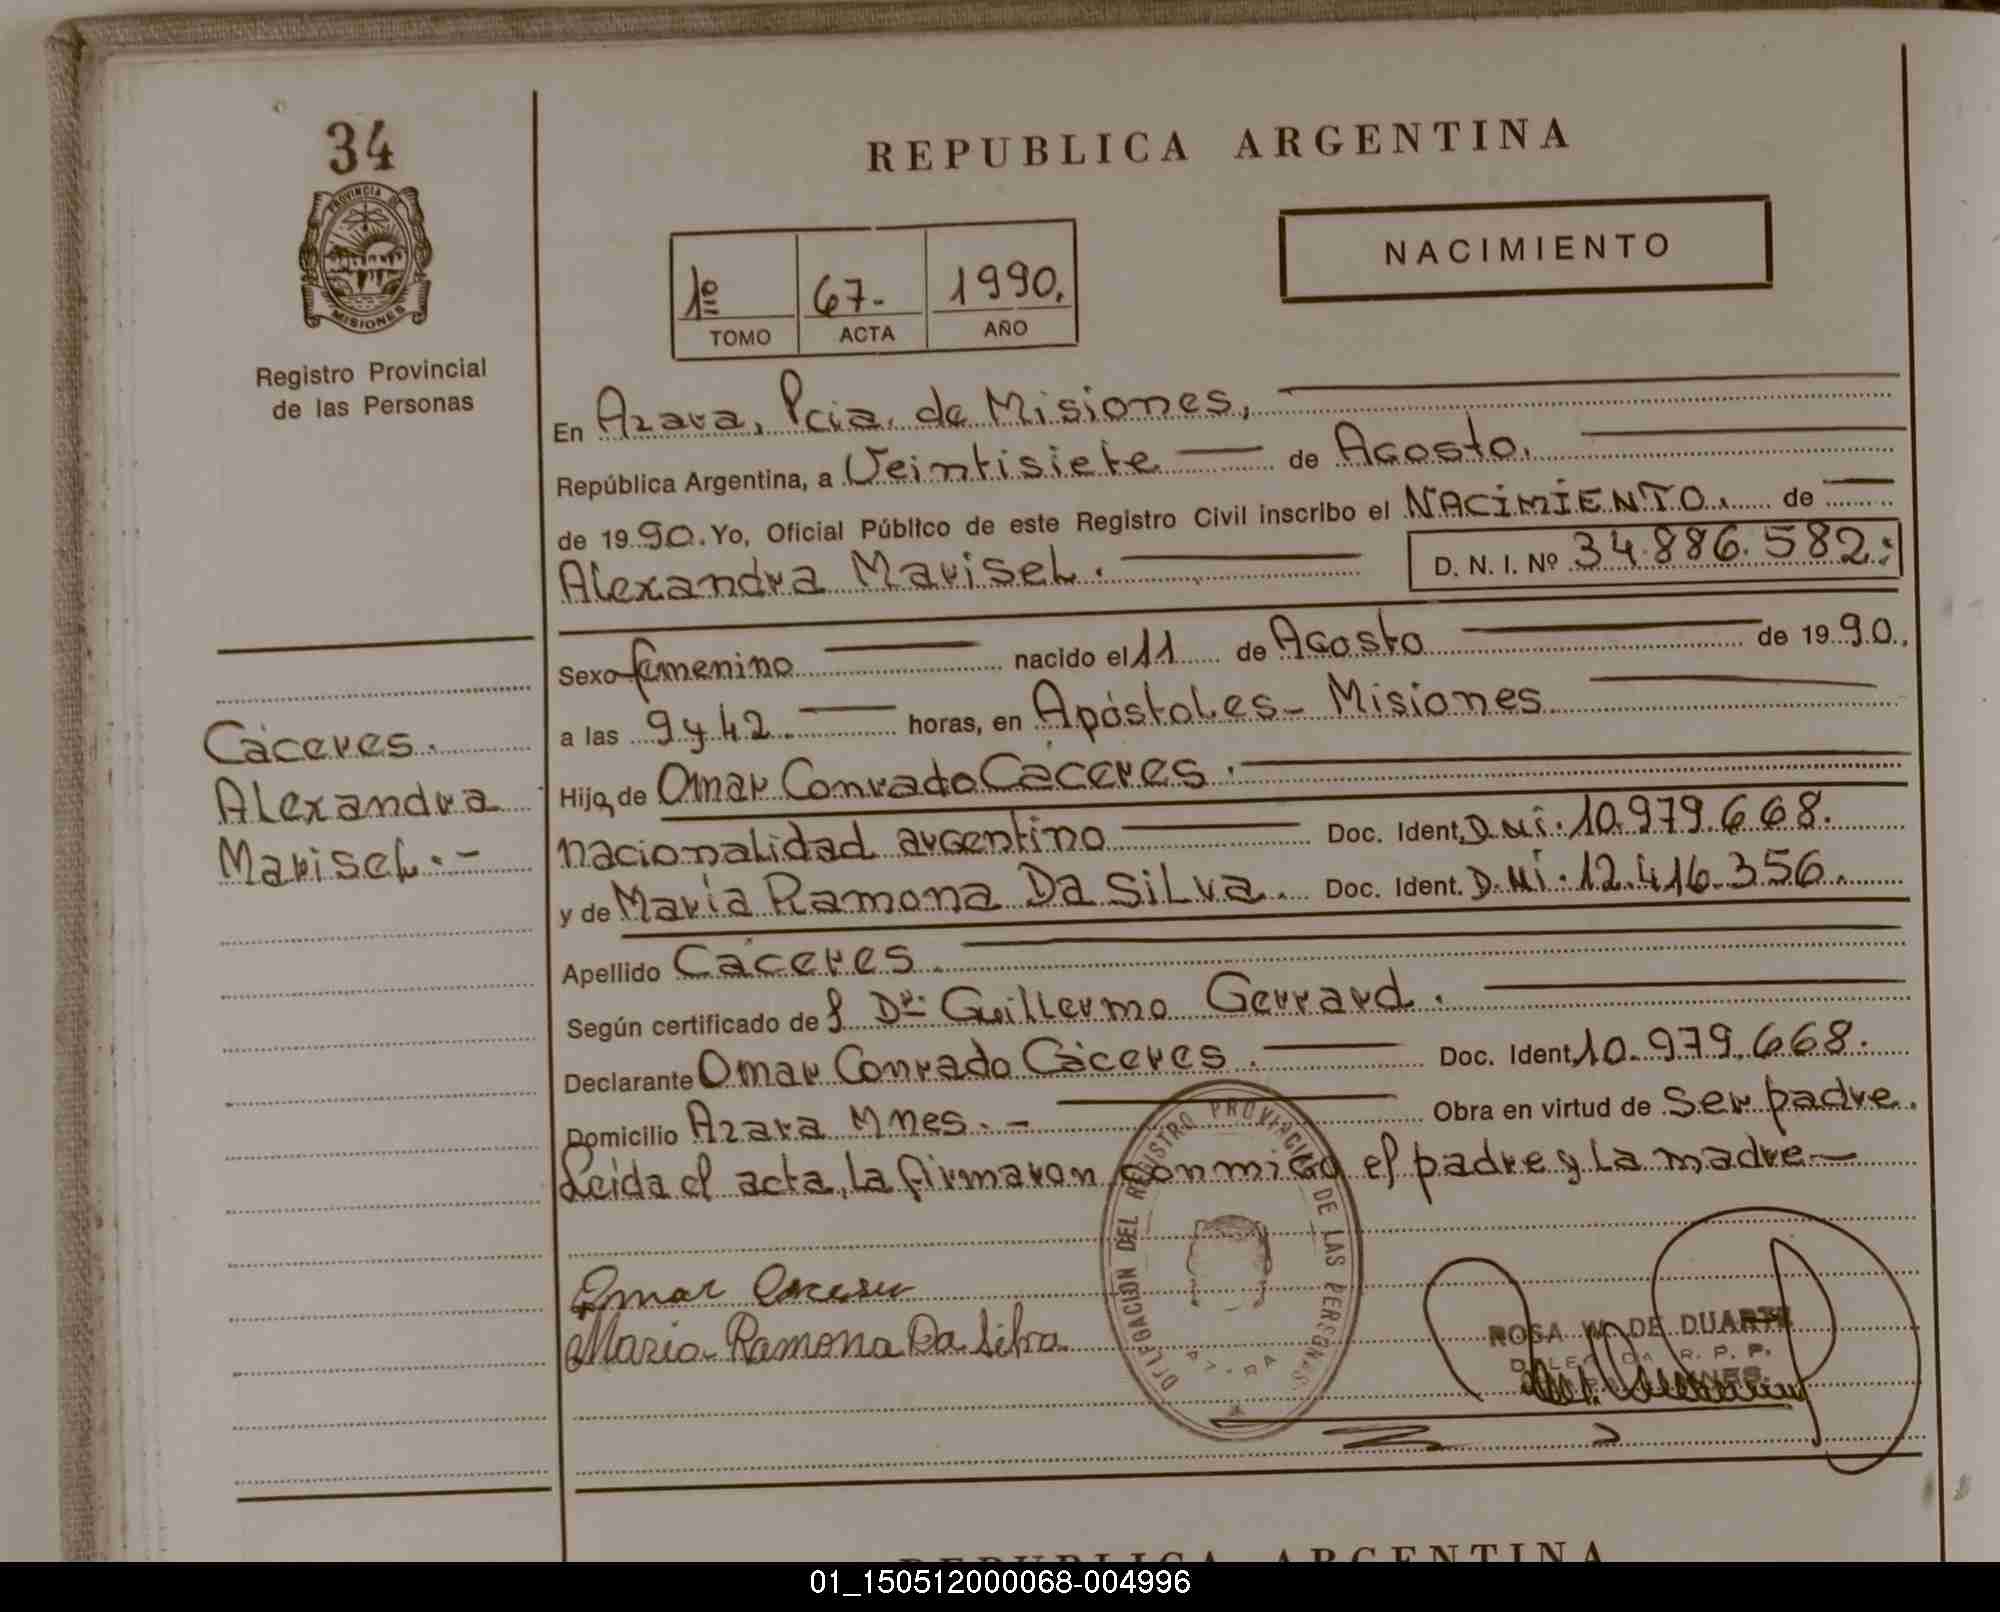 34
PROVINCIA DE
MISIONES
Registro Provincial
de las Personas
REPUBLICA ARGENTINA
NACIMIENTO
1º 67.- 1990.
TOMO ACTA AÑO
En Azara, Pcia. de Misiones,
República Argentina, a Veintisiete de Agosto.
de 1990. Yo, Oficial Público de este Registro Civil inscribo el NACIMIENTO. de
Alexandra Marisel. D. N. I. Nº 34.886.582.-
Sexo femenino nacido el 11 de Agosto de 1990.
a las 9 y 42. horas, en Apóstoles - Misiones
Hija de Omar Conrado Cáceres.
nacionalidad argentino Doc. Ident. D.N.i. 10.979.668.
y de María Ramona Da Silva. Doc. Ident. D.Ni. 12.416.356.
Apellido Cáceres.
Según certificado del Dr. Guillermo Gerrard.
Declarante Omar Conrado Cáceres. Doc. Ident. 10.979.668.
Domicilio Azara Mnes.- Obra en virtud de ser padre.
Leida el acta, la firmaron conmigo el padre y la madre-
Cáceres.
Alexandra
Marisel.-
Omar Caceres
Maria Ramona Da Silva
DELEGACION DEL REGISTRO PROVINCIAL DE LAS PERSONAS
AZARA
ROSA W. DE DUARTE
R. P. P.
MNES.
REPUBLICA ARGENTINA
01_150512000068-004996